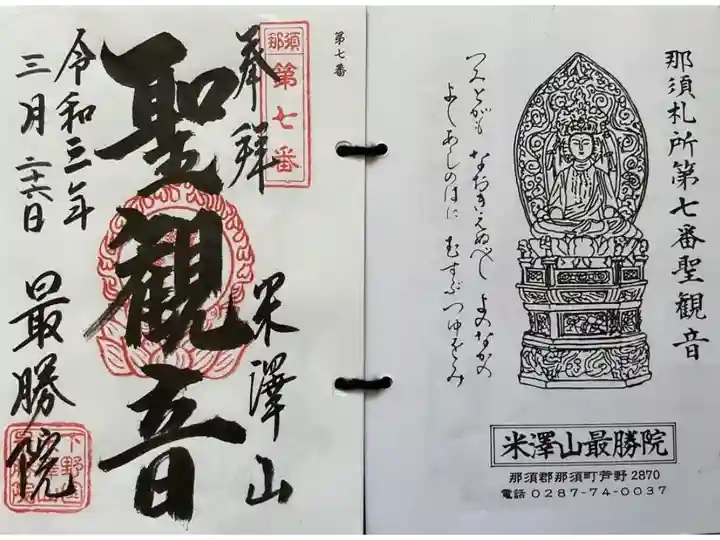 那須札所第七番聖観音
つみとがも なおきえぬべし よのなかの
よしあしのはに むすぶつゆ
米澤山最勝院
那須郡那須町芦野2870
電話0287-74-0037
第七番
那須
第七番
奉拝
米澤山
聖観音
令和三年
三月二十六日
最勝院